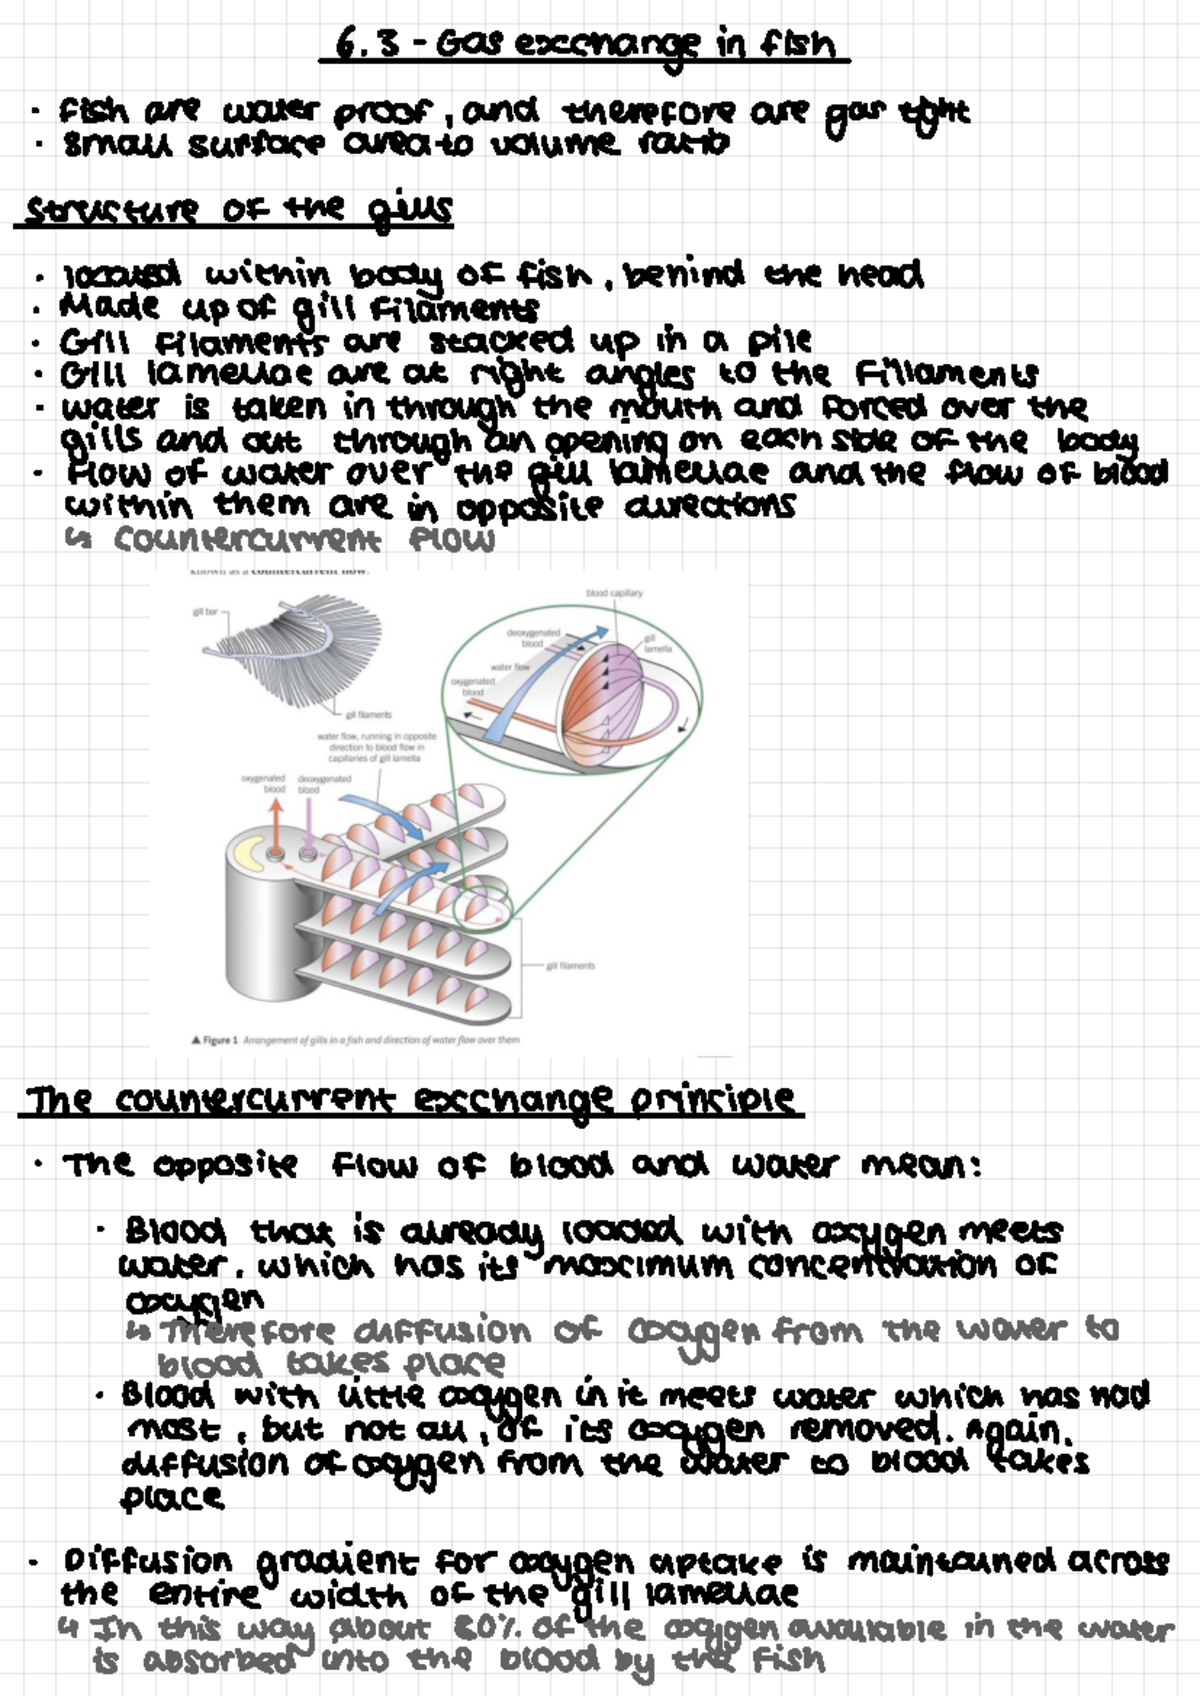 6.3 - Gas exchange in fish
· fish are water proof, and therefore are gas tight
· small surface area to volume ratio
Structure of the gills
· located within body of fish, behind the head
· Made up of gill filaments
· Gill filaments are stacked up in a pile
· Gill lamellae are at right angles to the fillaments
· water is taken in through the mouth and forced over the
gills and out through an opening on each side of the body
· flow of water over the gill lamellae and the flow of blood
within them are in opposite directions
↳ countercurrent flow
known as a countercurrent flow.
blood capillary
gill bar
deoxygenated
blood
gill
lamella
water flow
oxygenated
blood
gill filaments
water flow, running in opposite
direction to blood flow in
capillaries of gill lamella
oxygenated
blood
deoxygenated
blood
gill filaments
▲ Figure 1 Arrangement of gills in a fish and direction of water flow over them
The countercurrent exchange principle
· The opposite flow of blood and water mean:
· Blood that is already loaded with oxygen meets
water, which has its maximum concentration of
oxygen
↳ Therefore diffusion of oxygen from the water to
blood takes place
· Blood with little oxygen in it meets water which has had
most, but not all, of its oxygen removed. Again,
diffusion of oxygen from the water to blood takes
place
· Diffusion gradient for oxygen uptake is maintained across
the entire width of the gill lamellae
↳ In this way about 80% of the oxygen available in the water
is absorbed into the blood by the fish